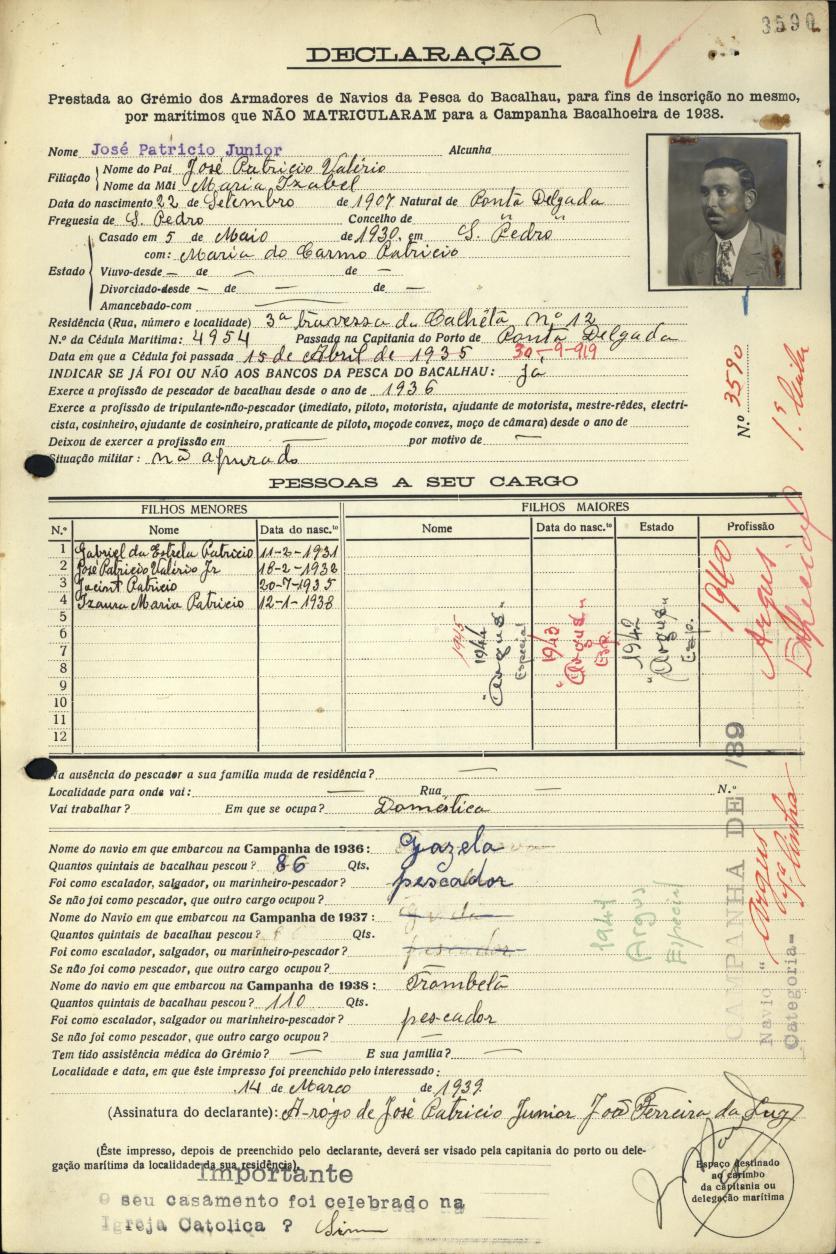 3590
DECLARAÇÃO
Prestada ao Grémio dos Armadores de Navios da Pesca do Bacalhau, para fins de inscrição no mesmo,
por marítimos que NÃO MATRICULARAM para a Campanha Bacalhoeira de 1938.
Nome José Patricio Junior Alcunha
Filiação Nome do Pai José Patricio Valério
Nome da Mãi Maria Izabel
Data do nascimento 22 de Setembro de 1907 Natural de Ponta Delgada
Freguesia de S. Pedro Concelho de " "
Casado em 5 de Maio de 1930. em S. Pedro
com: Maria do Carmo Patricio
Estado Viuvo-desde — de — de —
Divorciado-desde — de — de —
Amancebado-com —
Residência (Rua, número e localidade) 3ª travessa da Calhêta nº 12
N.º da Cédula Marítima: 4954 Passada na Capitania do Porto de Ponta Delgada
Data em que a Cédula foi passada 15 de Abril de 1935 30-9-919
INDICAR SE JÁ FOI OU NÃO AOS BANCOS DA PESCA DO BACALHAU: já
Exerce a profissão de pescador de bacalhau desde o ano de 1936
Exerce a profissão de tripulante-não-pescador (imediato, piloto, motorista, ajudante de motorista, mestre-rêdes, electri-
cista, cosinheiro, ajudante de cosinheiro, praticante de piloto, moço de convez, moço de câmara) desde o ano de
Deixou de exercer a profissão em — por motivo de —
Situação militar: não apurado
N.º 3590
1ª linha
PESSOAS A SEU CARGO
FILHOS MENORES FILHOS MAIORES
N.º Nome Data do nasc.to Nome Data do nasc.to Estado Profissão
1 Gabriel da Estrela Patricio 11-2-1931
2 José Patricio Valério Jr 18-2-1932
3 Jacint Patricio 20-7-1935
4 Izaura Maria Patricio 12-1-1938
5
6
7
8
9
10
11
12
1945
1944
"Argus"
Especial
1943
"Argus"
Esp.
1942
"Argus"
Esp.
1940
Argus
Especial
Na ausência do pescador a sua familia muda de residência? —
Localidade para onde vai: — Rua — N.º
Vai trabalhar? Em que se ocupa? Doméstica
Nome do navio em que embarcou na Campanha de 1936: Gazela
Quantos quintais de bacalhau pescou? 86 Qts.
Foi como escalador, salgador, ou marinheiro-pescador? pescador
Se não foi como pescador, que outro cargo ocupou?
Nome do Navio em que embarcou na Campanha de 1937
Quantos quintais de bacalhau pescou? Qts.
Foi como escalador, salgador, ou marinheiro-pescador? pescador
Se não foi como pescador, que outro cargo ocupou?
Nome do navio em que embarcou na Campanha de 1938 Trombetá
Quantos quintais de bacalhau pescou? 110 Qts.
Foi como escalador, salgador ou marinheiro-pescador? pescador
Se não foi como pescador, que outro cargo ocupou? —
Tem tido assistência médica do Grémio? — E sua família? —
Localidade e data, em que êste impresso foi preenchido pelo interessado:
14 de Março de 1939
1941
Argus
Especial
CAMPANHA DE /39
Navio " Argus
Categoria- 1ª linha
(Assinatura do declarante): A-rôgo de José Patricio Junior João Ferreira da Luz
(Êste impresso, depois de preenchido pelo declarante, deverá ser visado pela capitania do porto ou dele-
gação marítima da localidade da sua residência).
Espaço destinado
ao carimbo
da capitania ou
delegação marítima
Importante
O seu casamento foi celebrado na
Igreja Catolica ? Sim